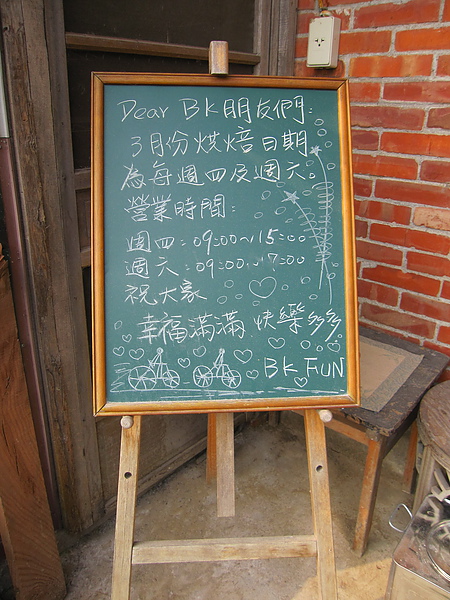 Dear BK朋友們:
3月份烘焙日期
為每週四及週六。
營業時間:
週四:09:00~15:00
週六:09:00~17:00
祝大家
幸福滿滿 快樂多多
BK FUN